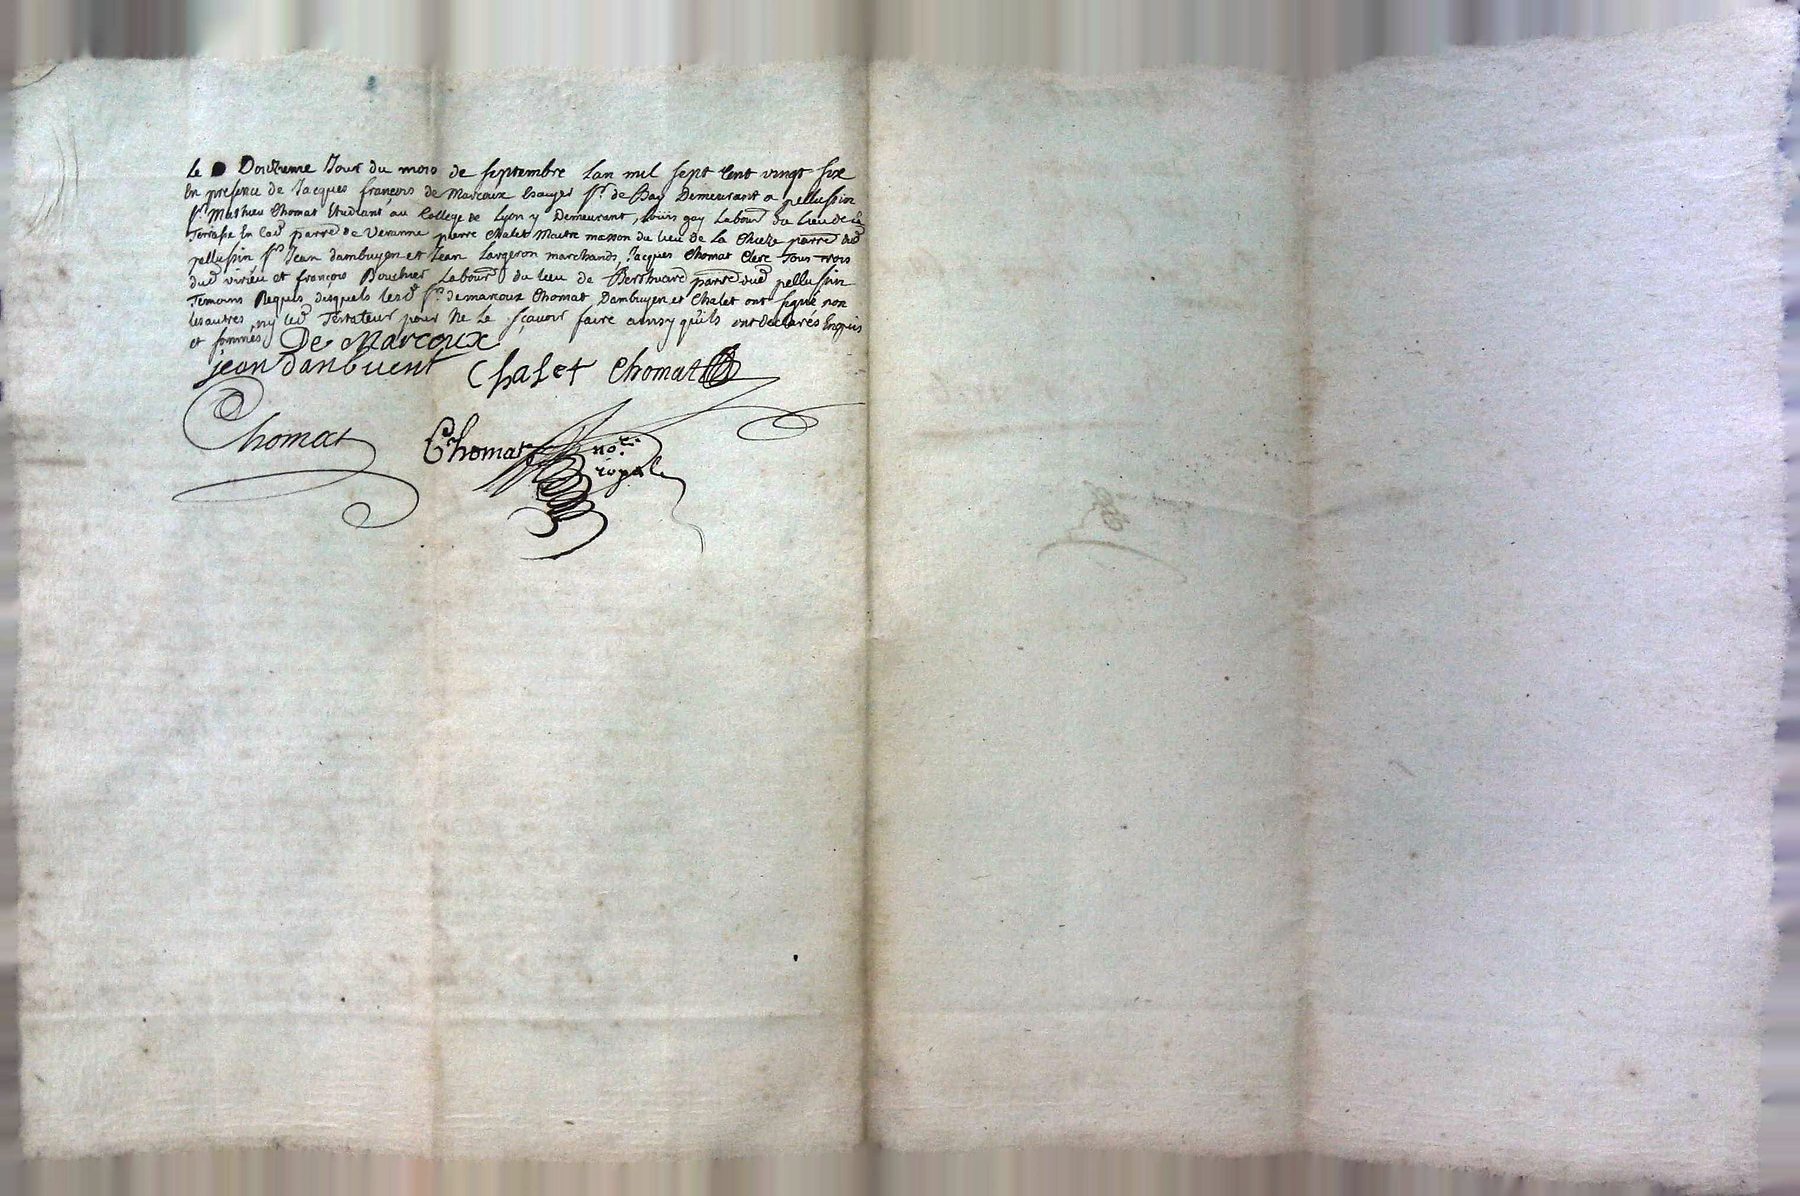 Le Douzieme Jour du mois de septembre Lan mil sept Cent vingt six
En presence de Jacques françois de Marcoux Esauyer Sr. de Bay Demeurant a pellussin
Sr. Mathieu Chomat Etudiant au College de Lyon y Demeurant, Louis gay Labour du Lieu de la
Terrasse En lad parre de Veranne pierre Chalet Maitre masson du lieu de La Chieze parre dud
pellussin Sr. Jean dambuyen et Jean Largeron marchands, Jacques Chomat Clerc Tous trois
dud virieu et françois Bouchier Labour du lieu de parre dud pellussin
Temoins Requis desquels lesd Srs. demarcoux Chomat, Dambuyen et Chalet ont signé non
les autres ny led Testateur pour Ne Le sçavoir faire ainsy quils ont declarés Enquis
et sommés De Marcoux
jean danbuent Chalet Chomat
Chomat Chomat nore.
royal